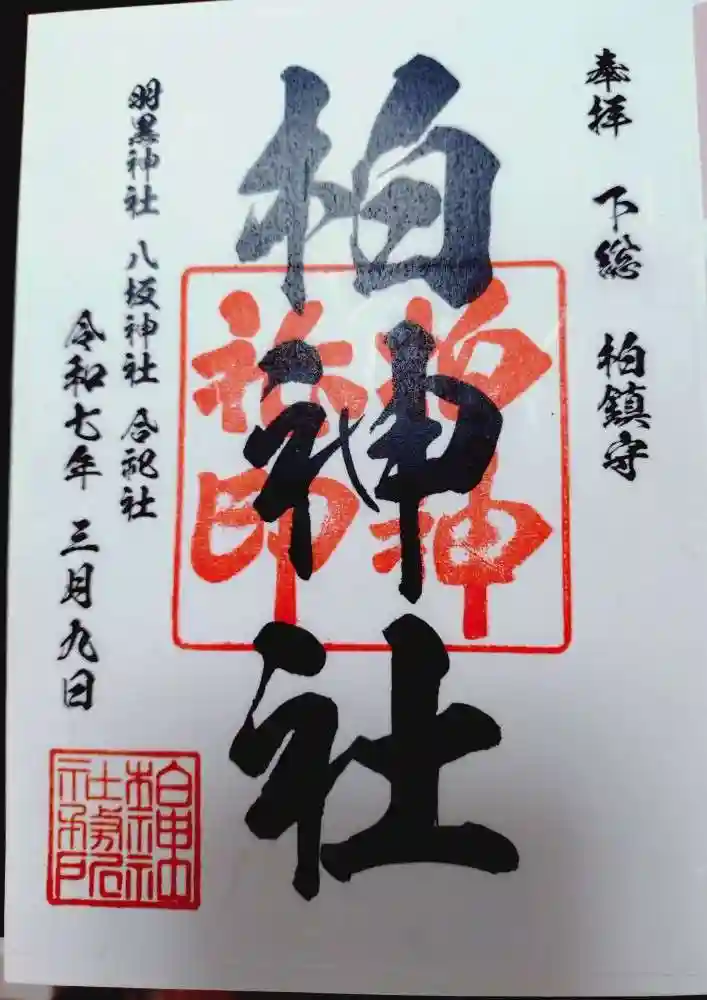 奉拝 下総 柏鎮守
柏神社
柏神社印
羽黒神社 八坂神社 合祀社
令和七年 三月九日
柏神社
社務所印